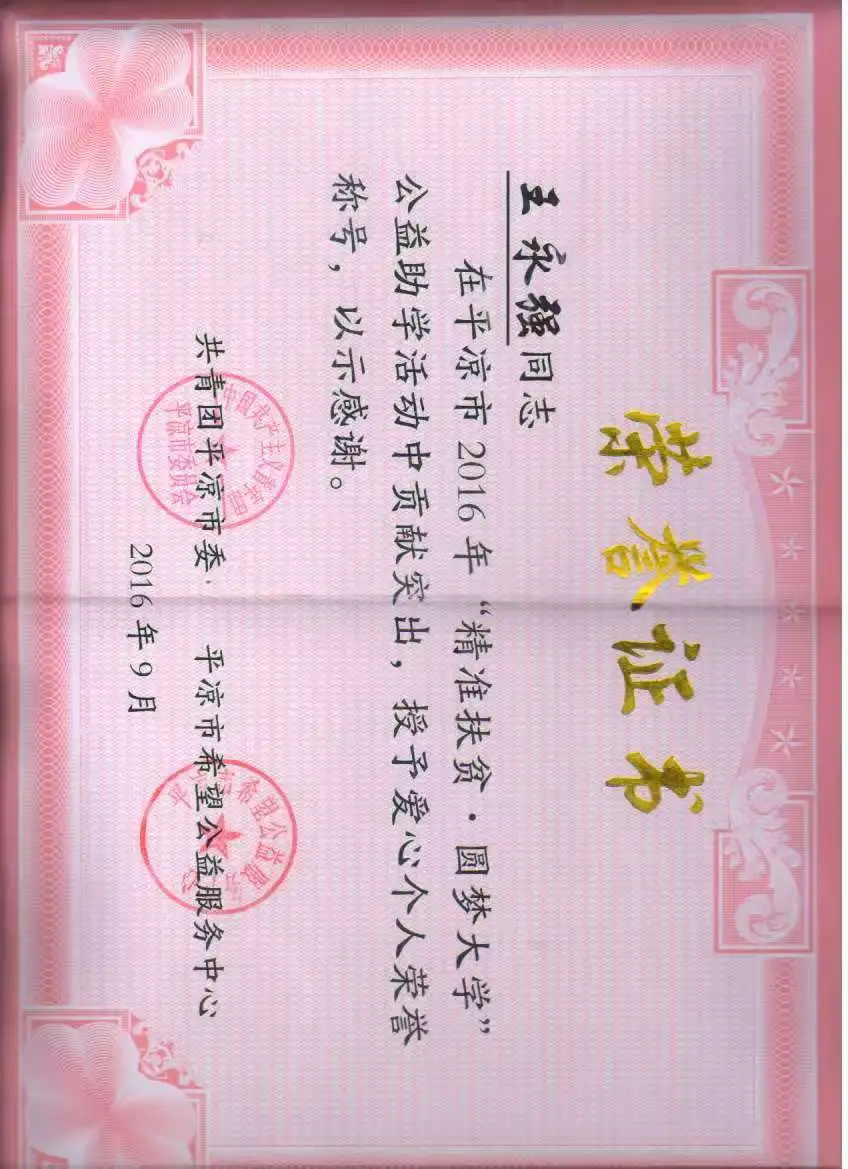 荣誉证书
王永强同志
在平凉市2016年“精准扶贫·圆梦大学”
公益助学活动中贡献突出，授予爱心个人荣誉
称号，以示感谢。
共青团平凉市委 平凉市希望公益服务中心
2016年9月
中国共产主义青年团
平凉市委员会
平凉市希望公益服务中心